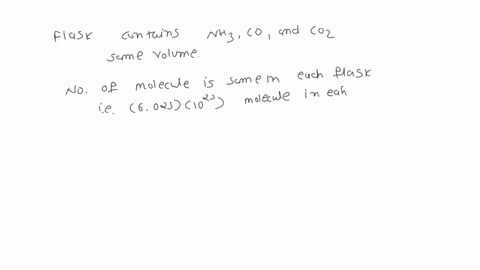 Flask contains NH3, CO, and CO2
same volume.
No. of molecule is same in each flask
i.e. (6.023)(10^23) molecule in eah